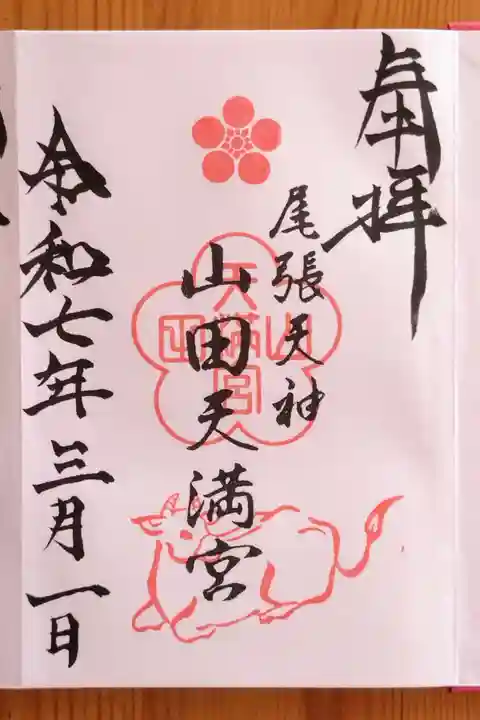 奉拝
尾張天神
山田天満宮
山田
天満宮
令和七年三月一日